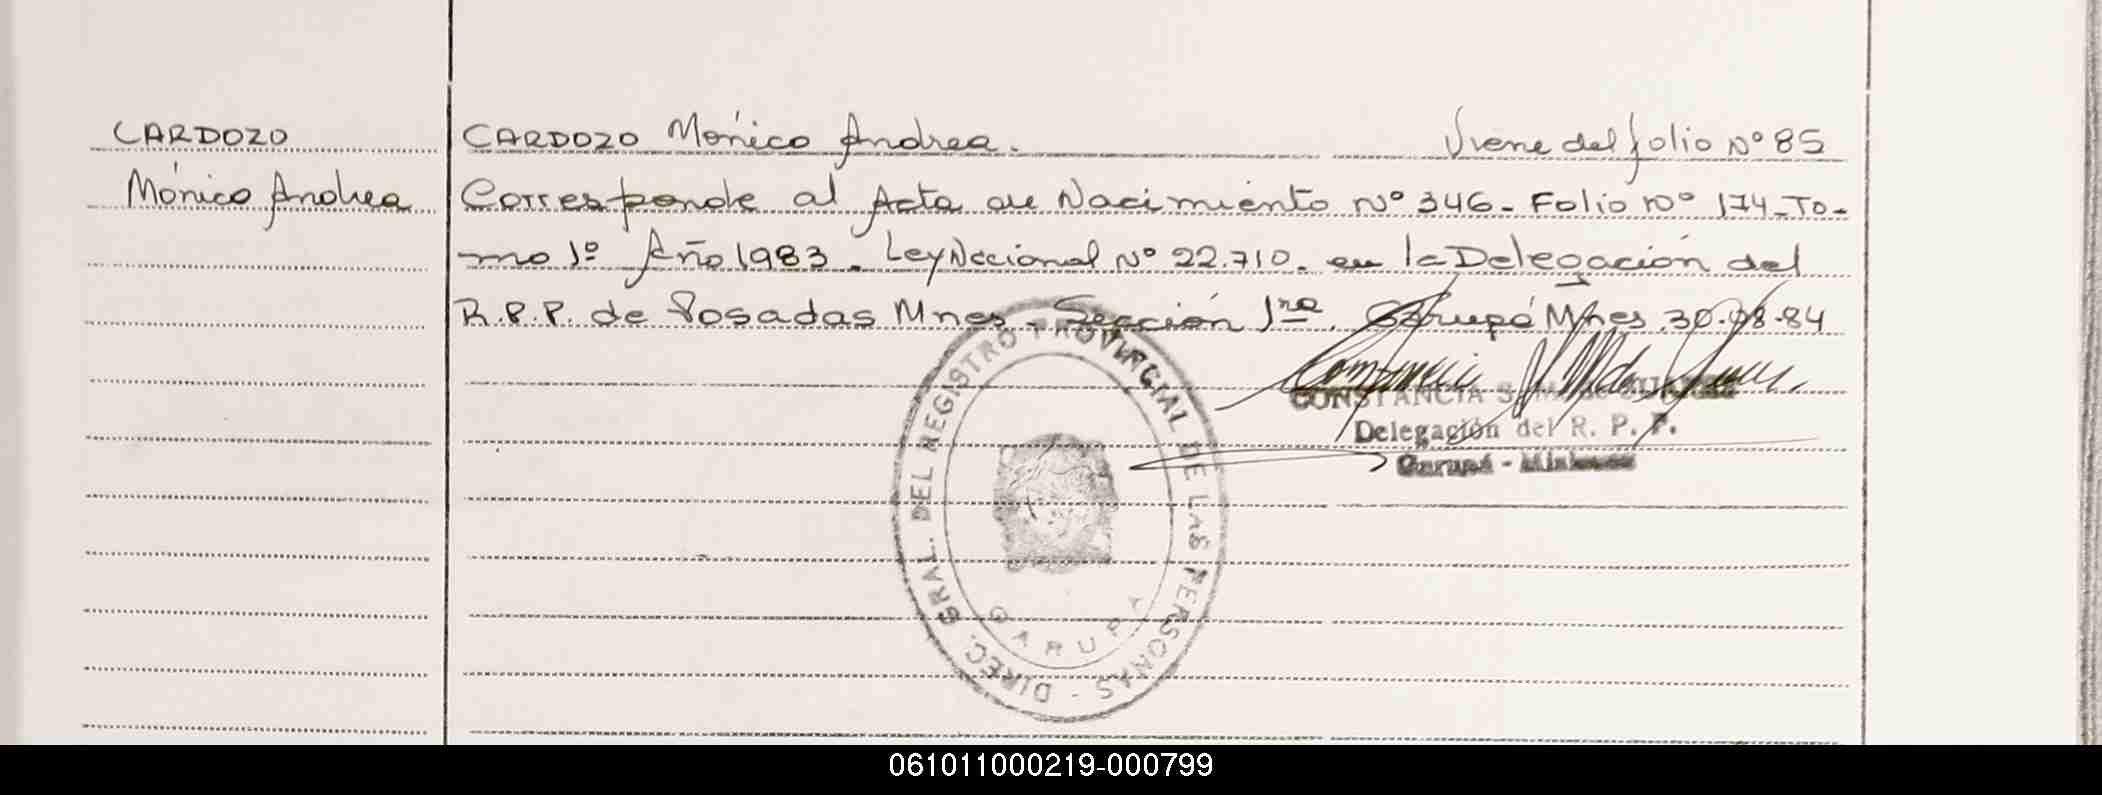 CARDOZO
Mónica Andrea
CARDOZO Mónica Andrea. Viene del folio Nº 85
Corresponde al Acta de Nacimiento Nº 346 - Folio Nº 174 - To-
mo 1º Año 1983. Ley Nacional Nº 22.710. en la Delegación del
R.P.P. de Posadas Mnes - Sección 1ra. Garupá Mnes. 30.08.84
CONSTANCIA
Delegación del R. P. P.
Garupá - Misiones
DIREC. GRAL. DEL REGISTRO PROVINCIAL DE LAS PERSONAS -
GARUPA
061011000219-000799